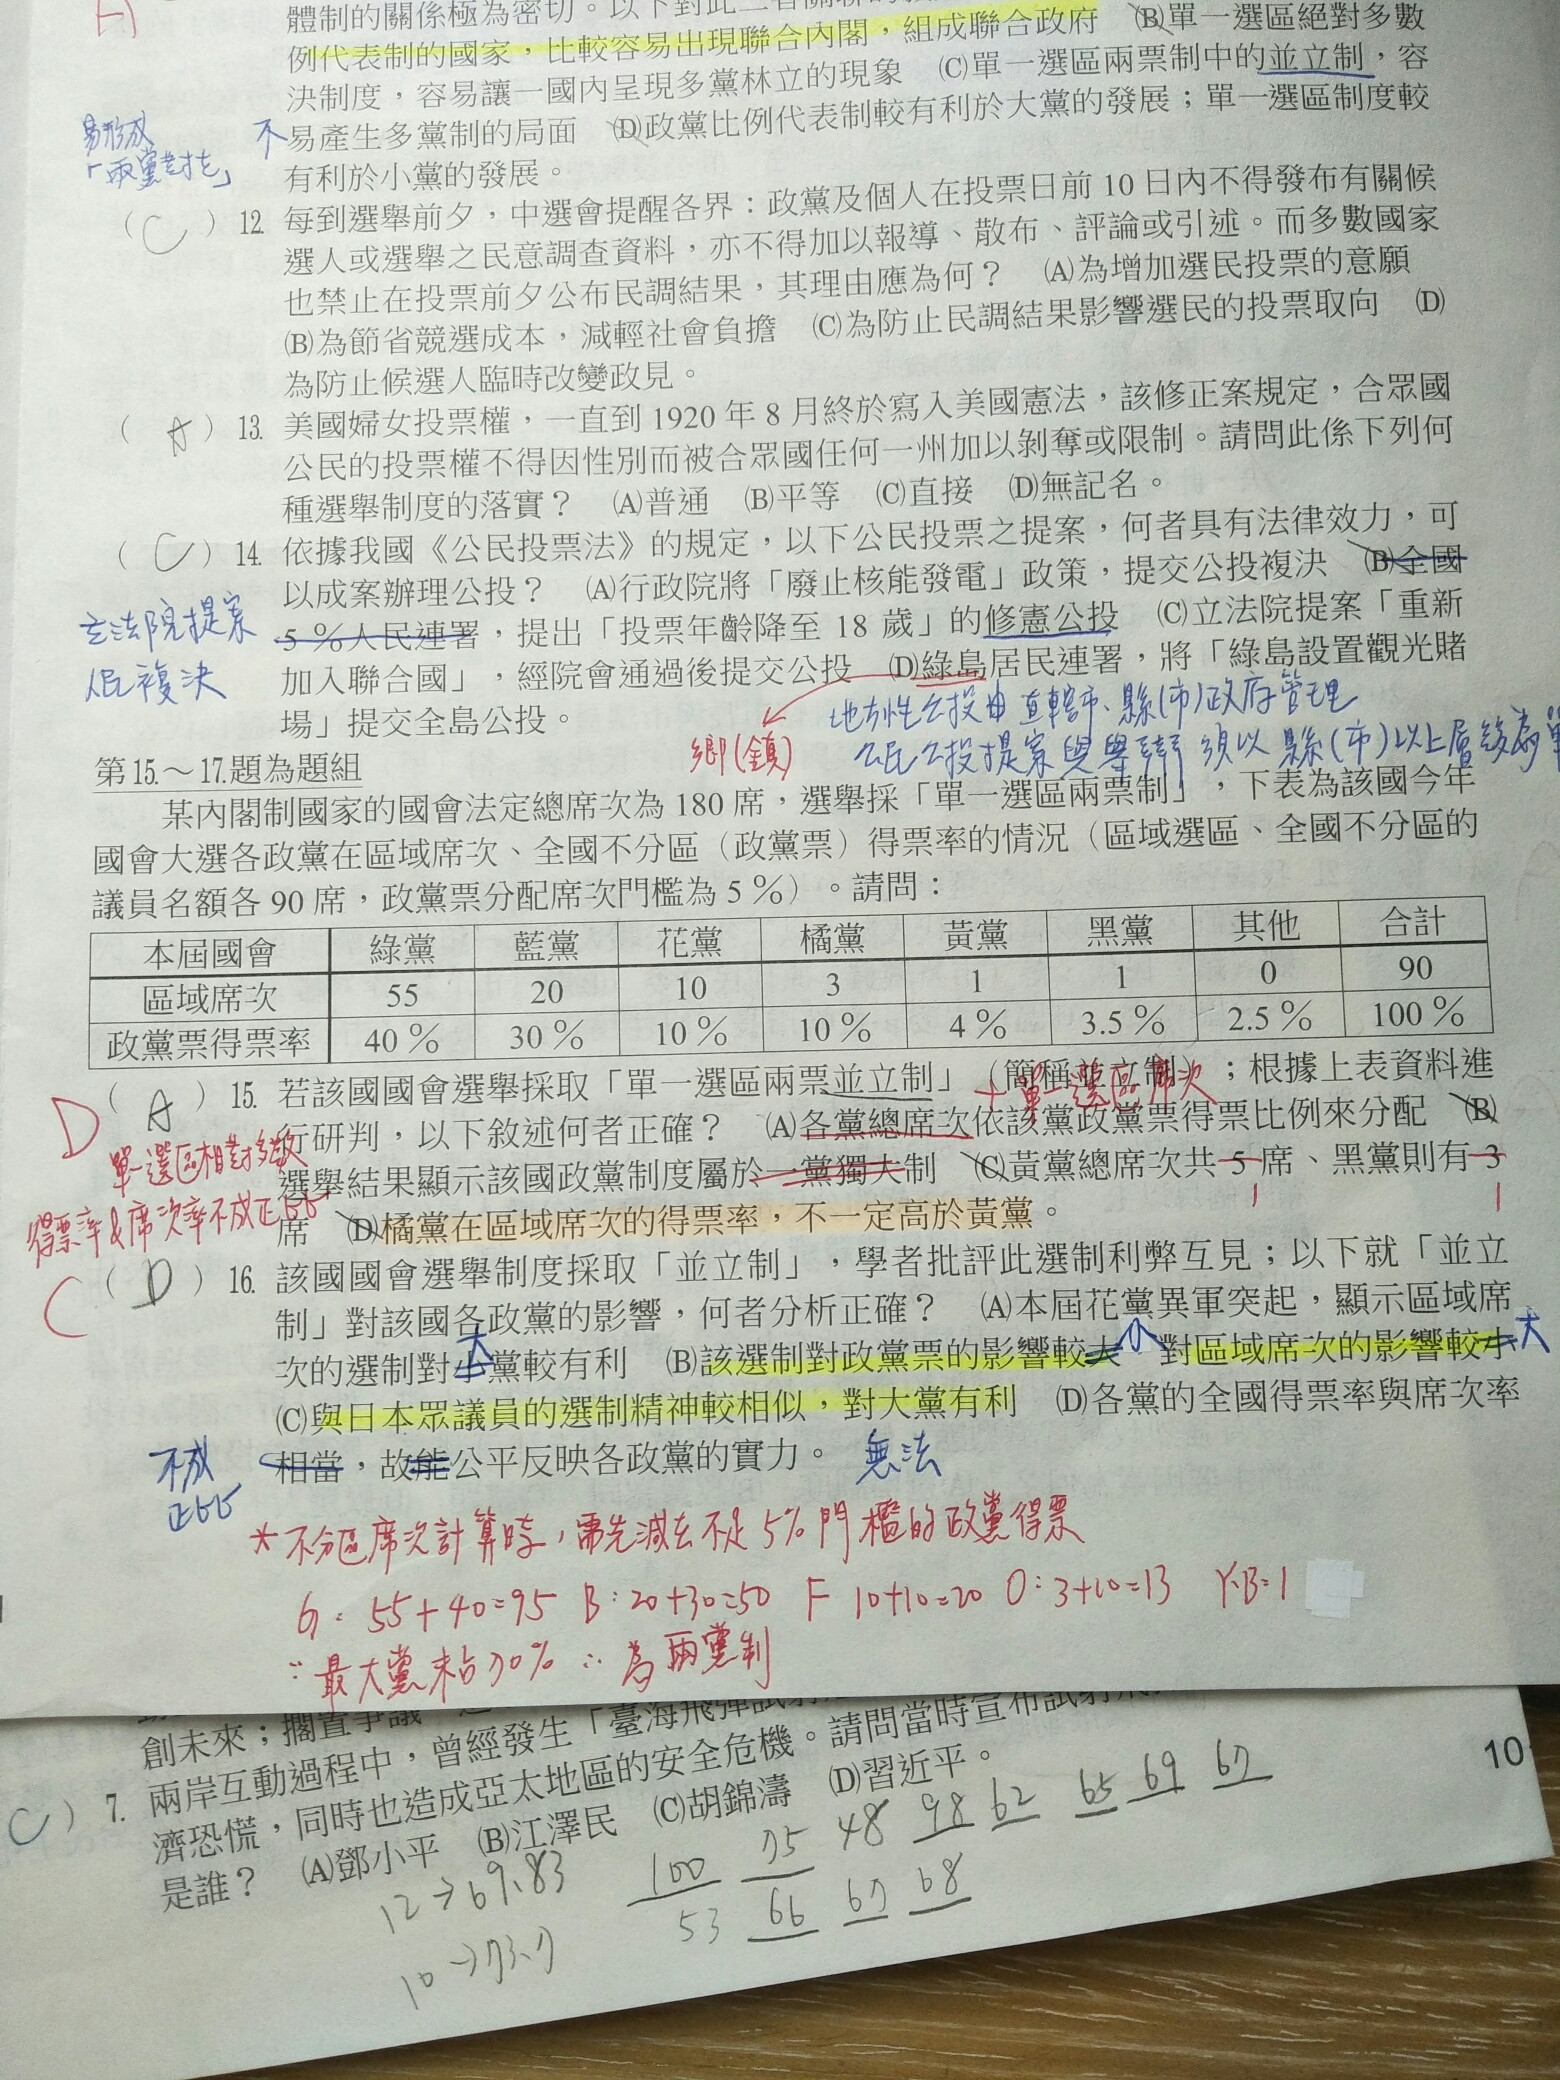 體制的關係極為密切。以下對此二者關聯的
例代表制的國家，比較容易出現聯合內閣，組成聯合政府　(B)單一選區絕對多數
決制度，容易讓一國內呈現多黨林立的現象　(C)單一選區兩票制中的並立制，容
易形成
「兩黨對立」
不
易產生多黨制的局面　(D)政黨比例代表制較有利於大黨的發展；單一選區制度較
有利於小黨的發展。
（ C ）12. 每到選舉前夕，中選會提醒各界：政黨及個人在投票日前 10 日內不得發布有關候
選人或選舉之民意調查資料，亦不得加以報導、散布、評論或引述。而多數國家
也禁止在投票前夕公布民調結果，其理由應為何？　(A)為增加選民投票的意願
(B)為節省競選成本，減輕社會負擔　(C)為防止民調結果影響選民的投票取向　(D)
為防止候選人臨時改變政見。
（ A ）13. 美國婦女投票權，一直到 1920 年 8 月終於寫入美國憲法，該修正案規定，合眾國
公民的投票權不得因性別而被合眾國任何一州加以剝奪或限制。請問此係下列何
種選舉制度的落實？　(A)普通　(B)平等　(C)直接　(D)無記名。
（ C ）14. 依據我國《公民投票法》的規定，以下公民投票之提案，何者具有法律效力，可
以成案辦理公投？　(A)行政院將「廢止核能發電」政策，提交公投複決　(B)全國
5 %人民連署，提出「投票年齡降至 18 歲」的修憲公投　(C)立法院提案「重新
加入聯合國」，經院會通過後提交公投　(D)綠島居民連署，將「綠島設置觀光賭
場」提交全島公投。
立法院提案
人民複決
鄉(鎮)
地方性公投由直轄市、縣(市)政府管理
公民公投提案與舉辦須以縣(市)以上層級為單
第15.～17.題為題組
某內閣制國家的國會法定總席次為 180 席，選舉採「單一選區兩票制」，下表為該國今年
國會大選各政黨在區域席次、全國不分區（政黨票）得票率的情況（區域選區、全國不分區的
議員名額各 90 席，政黨票分配席次門檻為 5 %）。請問：
本屆國會　綠黨　藍黨　花黨　橘黨　黃黨　黑黨　其他　合計
區域席次　55　20　10　3　1　1　0　90
政黨票得票率　40 %　30 %　10 %　10 %　4 %　3.5 %　2.5 %　100 %
D（ A ）15. 若該國國會選舉採取「單一選區兩票並立制」（簡稱並立制）；根據上表資料進
+單一選區席次
行研判，以下敘述何者正確？　(A)各黨總席次依該黨政黨票得票比例來分配　(B)
選舉結果顯示該國政黨制度屬於一黨獨大制　(C)黃黨總席次共 5 席、黑黨則有 3
1　1
席　(D)橘黨在區域席次的得票率，不一定高於黃黨。
單一選區相對多數
得票率&席次率不成正比
C（ D ）16. 該國國會選舉制度採取「並立制」，學者批評此選制利弊互見；以下就「並立
制」對該國各政黨的影響，何者分析正確？　(A)本屆花黨異軍突起，顯示區域席
次的選制對小黨較有利　(B)該選制對政黨票的影響較大　對區域席次的影響較小
大　小　大
(C)與日本眾議員的選制精神較相似，對大黨有利　(D)各黨的全國得票率與席次率
相當，故能公平反映各政黨的實力。 無法
不成
正比
*不分區席次計算時，需先減去不足5%門檻的政黨得票
G: 55+40=95 B:20+30=50 F 10+10=20 O:3+10=13 Y.B=1
∵最大黨未占70% ∴為兩黨制
兩岸互動過程中，曾經發生「臺海飛彈試射
創未來；擱置爭議
（ C ）7. 濟恐慌，同時也造成亞太地區的安全危機。請問當時宣布試射
是誰？　(A)鄧小平　(B)江澤民　(C)胡錦濤　(D)習近平。
10
12→69.83
100 75 48 98 62 65 69 67
53 66 67 68
10→73.7